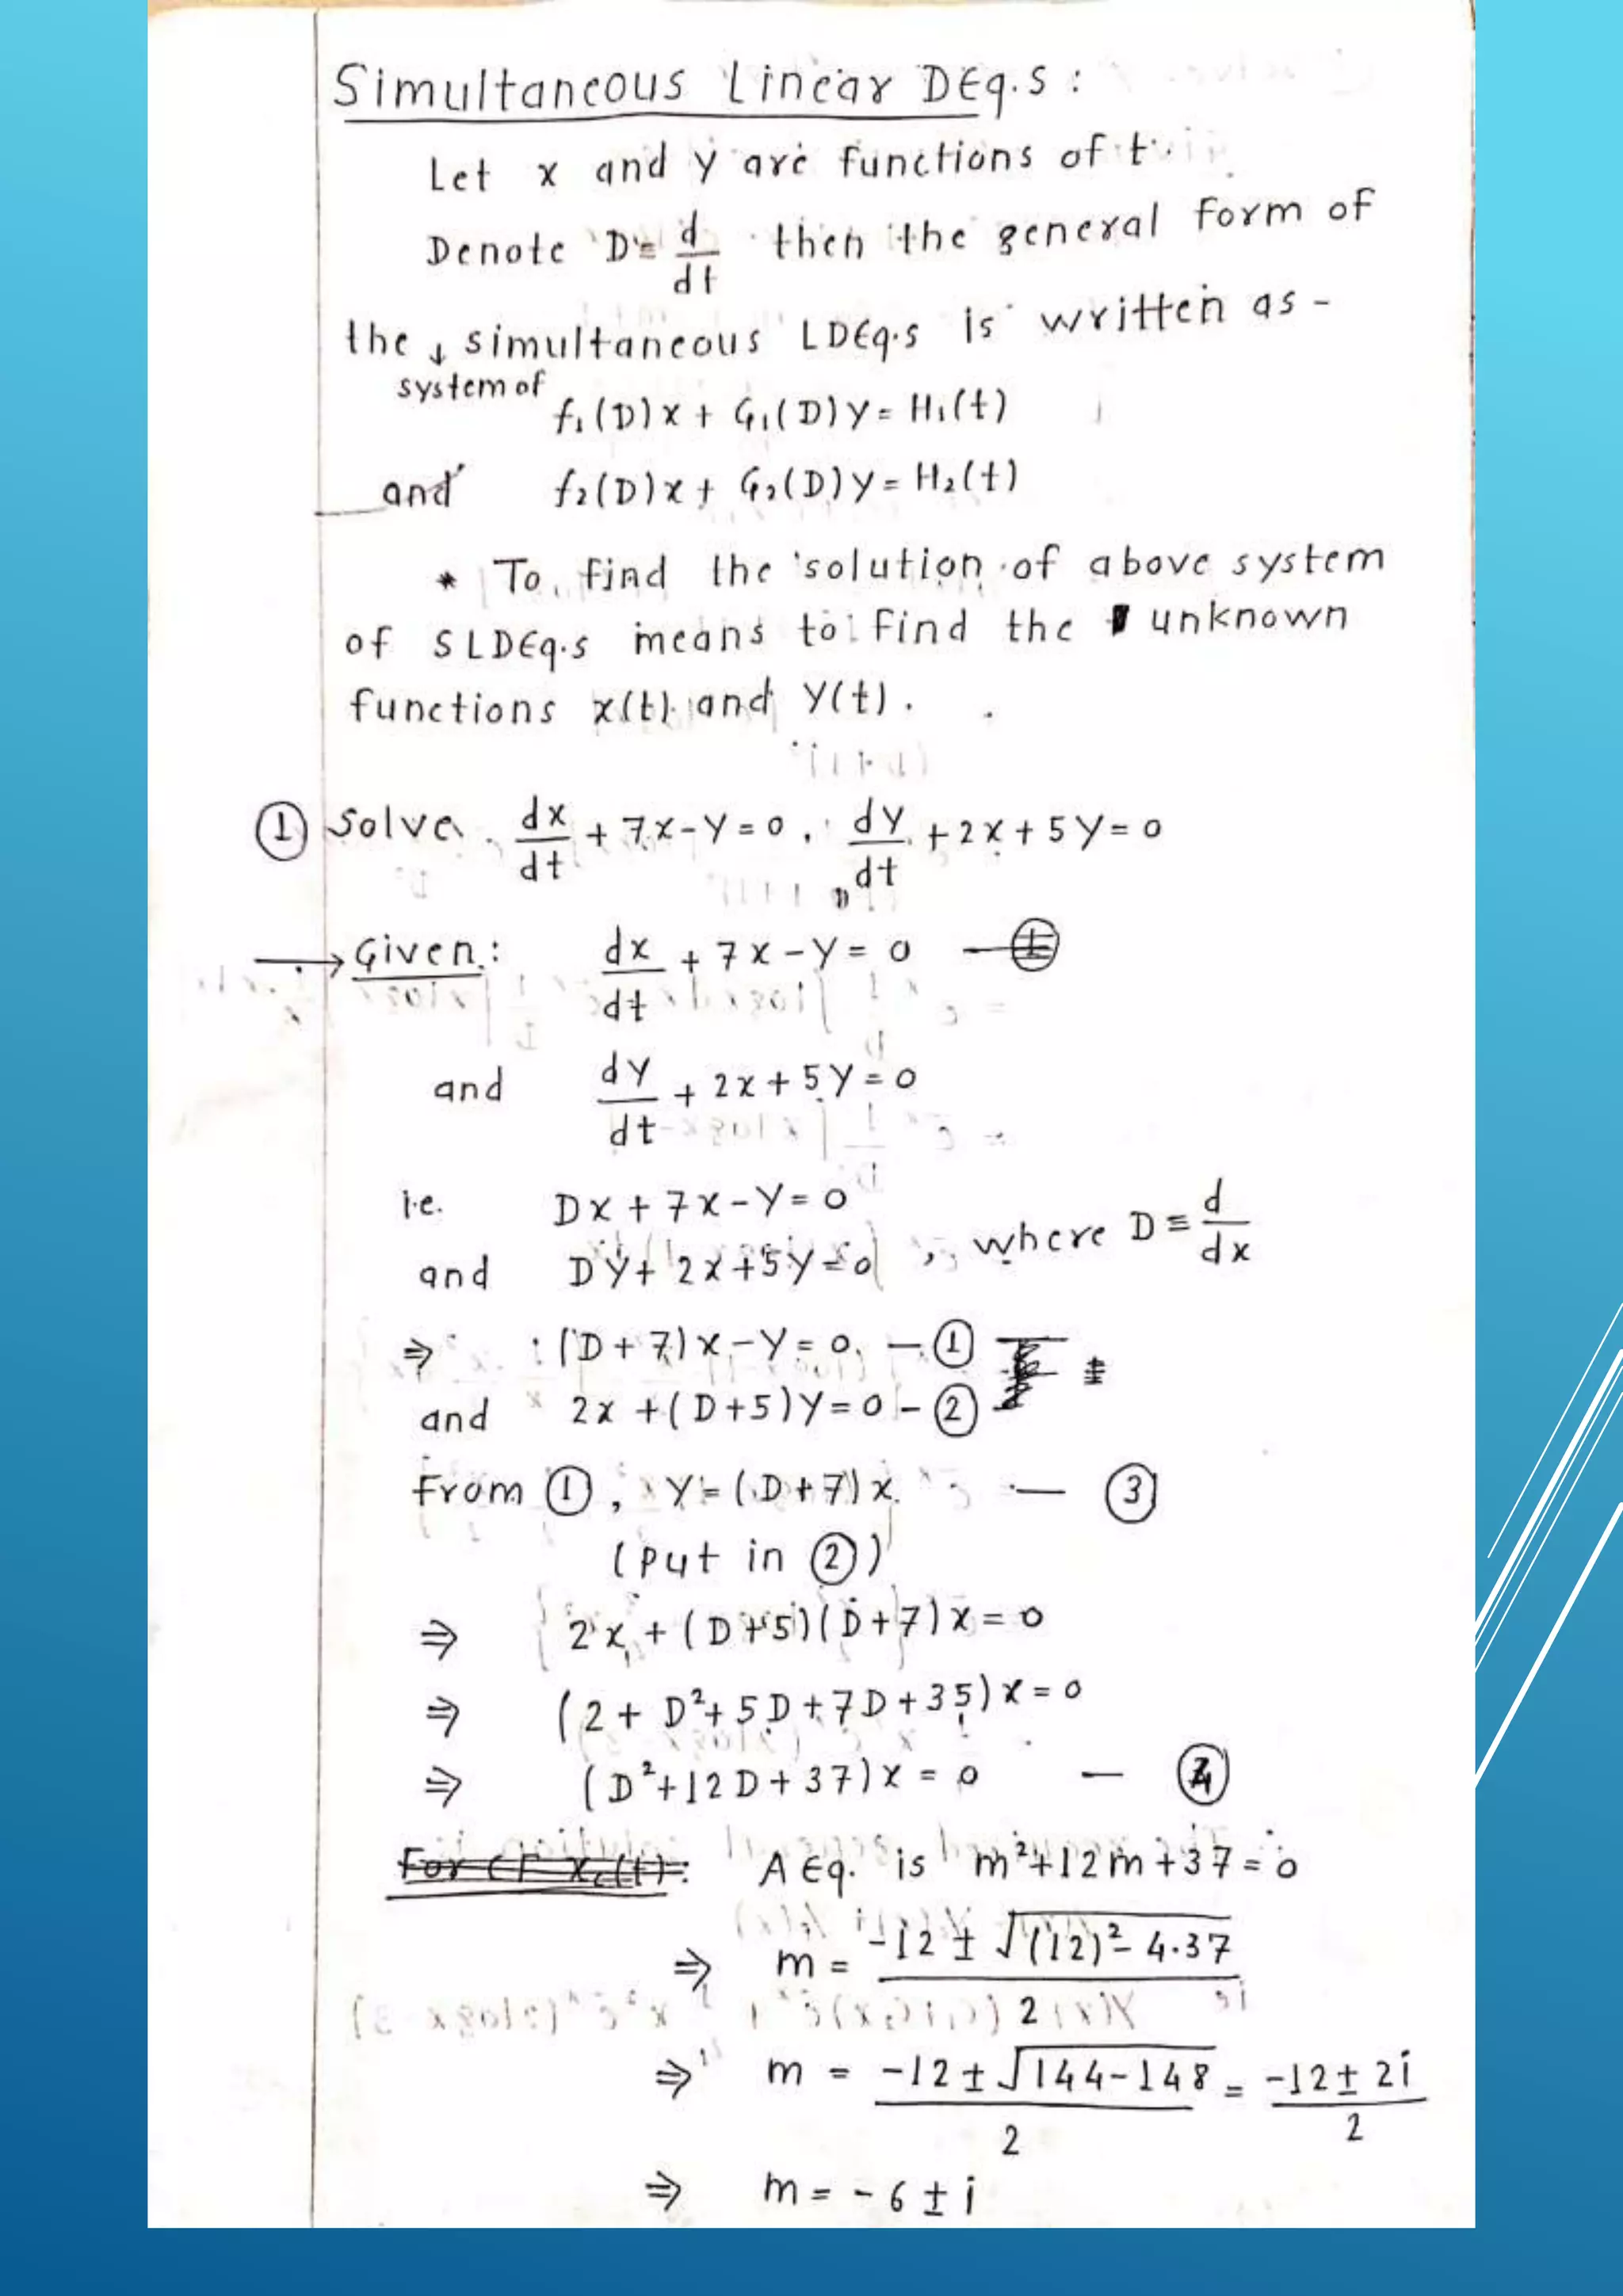 Simultaneous Linear DEq.s :
Let x and y are functions of t.
Denote D ≡ d/dt then the general form of
the ↓ simultaneous LDEq.s is written as -
system of
f₁(D)x + G₁(D)y = H₁(t)
and f₂(D)x + G₂(D)y = H₂(t)
* To find the solution of above system
of SLDEq.s means to find the unknown
functions x(t) and y(t).
① Solve dx/dt + 7x - y = 0, dy/dt + 2x + 5y = 0
→ Given: dx/dt + 7x - y = 0
and dy/dt + 2x + 5y = 0
i.e. Dx + 7x - y = 0
and Dy + 2x + 5y = 0, where D ≡ d/dx
⇒ (D+7)x - y = 0 — ①
and 2x + (D+5)y = 0 — ②
From ①, y = (D+7)x — ③
(put in ②)
⇒ 2x + (D+5)(D+7)x = 0
⇒ (2 + D² + 5D + 7D + 35)x = 0
⇒ (D² + 12D + 37)x = 0 — ④
A Eq. is m² + 12m + 37 = 0
⇒ m = -12 ± √(12)² - 4·37 / 2
⇒ m = -12 ± √144-148 / 2 = -12 ± 2i / 2
⇒ m = -6 ± i